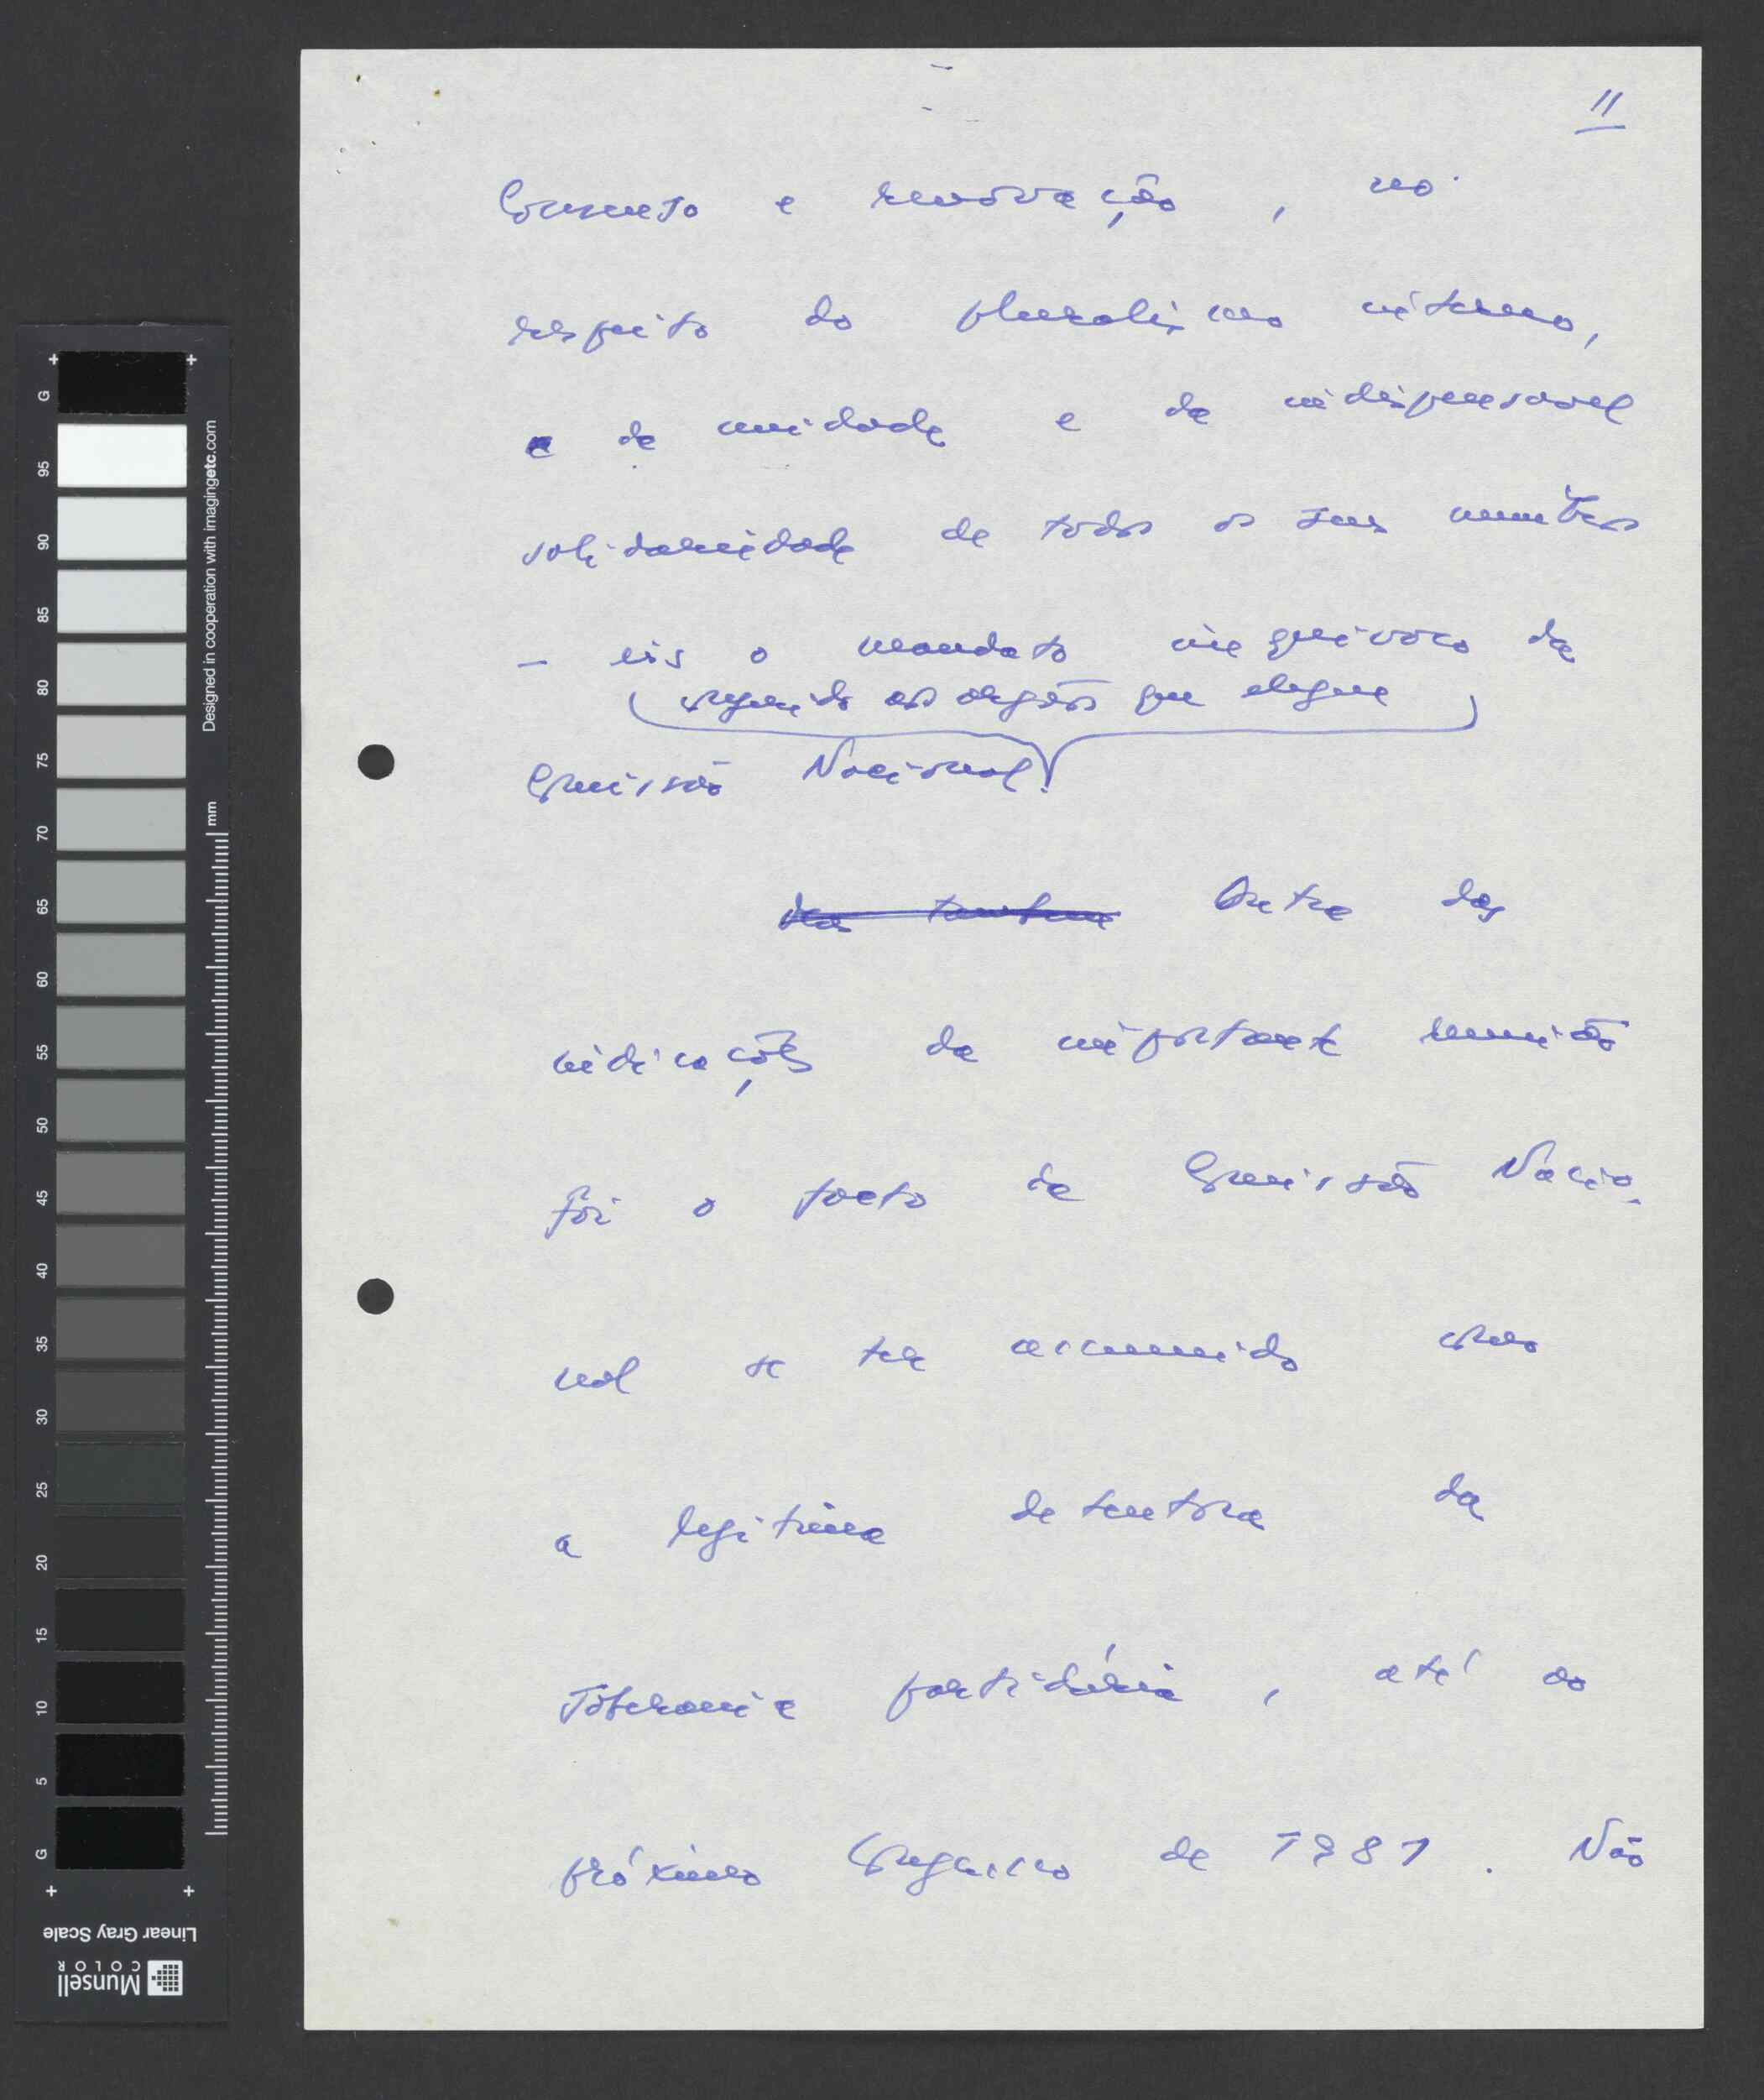 11
Consenso e renovação, no
respeito do pluralismo interno,
da unidade e da indispensável
solidariedade de todos os seus membros
– eis o mandato inequívoco da
conferido aos orgãos que elegeu
Comissão Nacional.
Outra das
indicações da importante reunião
foi o facto da Comissão Nacio-
nal se ter assumido como
a legítima detentora da
soberania partidária, até ao
próximo Congresso de 1981. Não
G 95 90 85 80 75 70 65 60 55 50 45 40 35 30 25 20 15 10 5 G
Designed in cooperation with imagingetc.com
mm
Linear Gray Scale
Munsell
COLOR